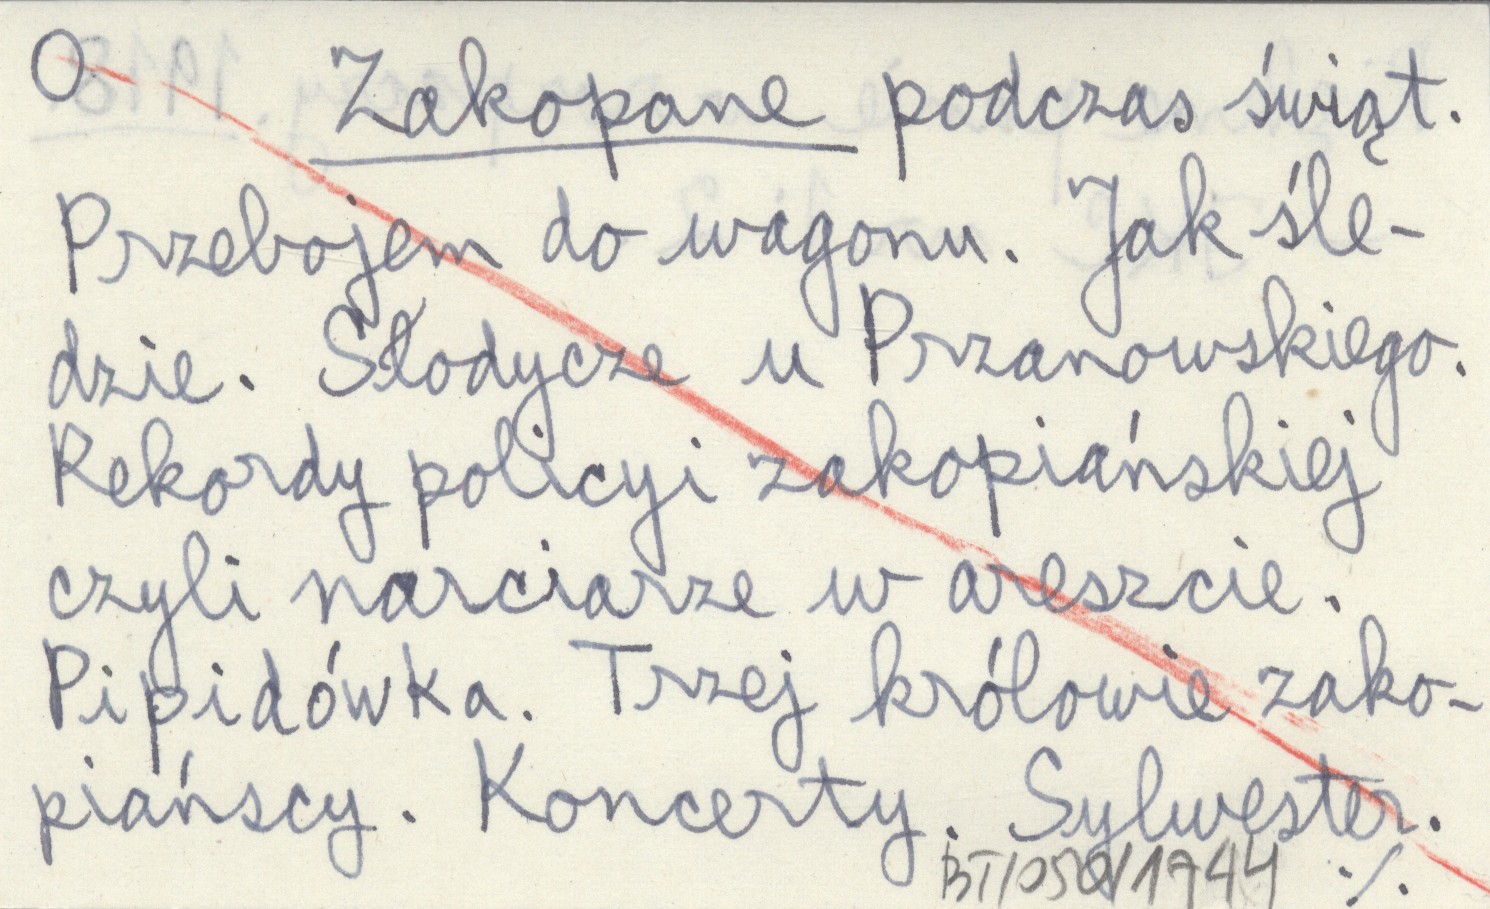 O. Zakopane podczas świąt.
Przebojem do wagonu. Jak śle-
dzie. Słodycze u Przanowskiego.
Rekordy policyi zakopiańskiej
czyli narciarze w areszcie.
Pipidówka. Trzej królowie zako-
piańscy. Koncerty. Sylwester.
BT/050/1744 ./.